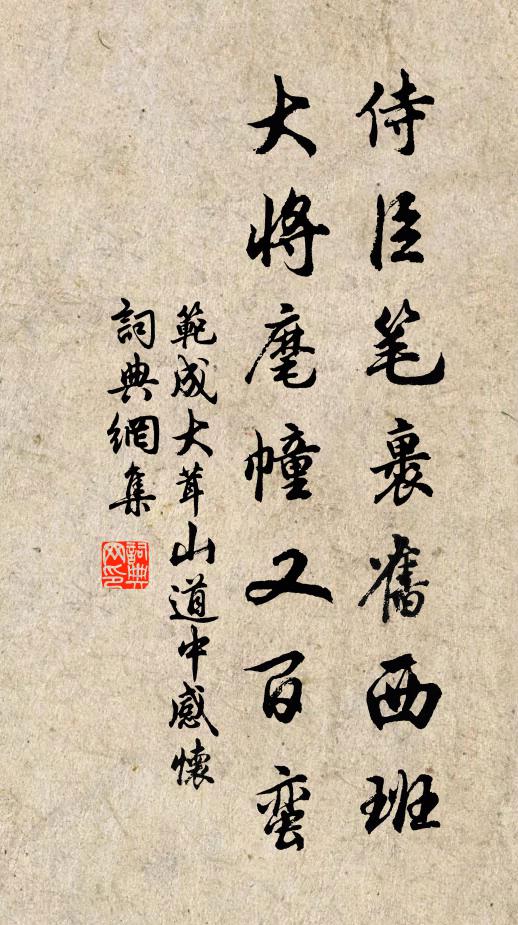 侍臣笔裹舊西班
大將麾幢又百蛮
範成大茸山道中感懷
詞典網集
詞典网印